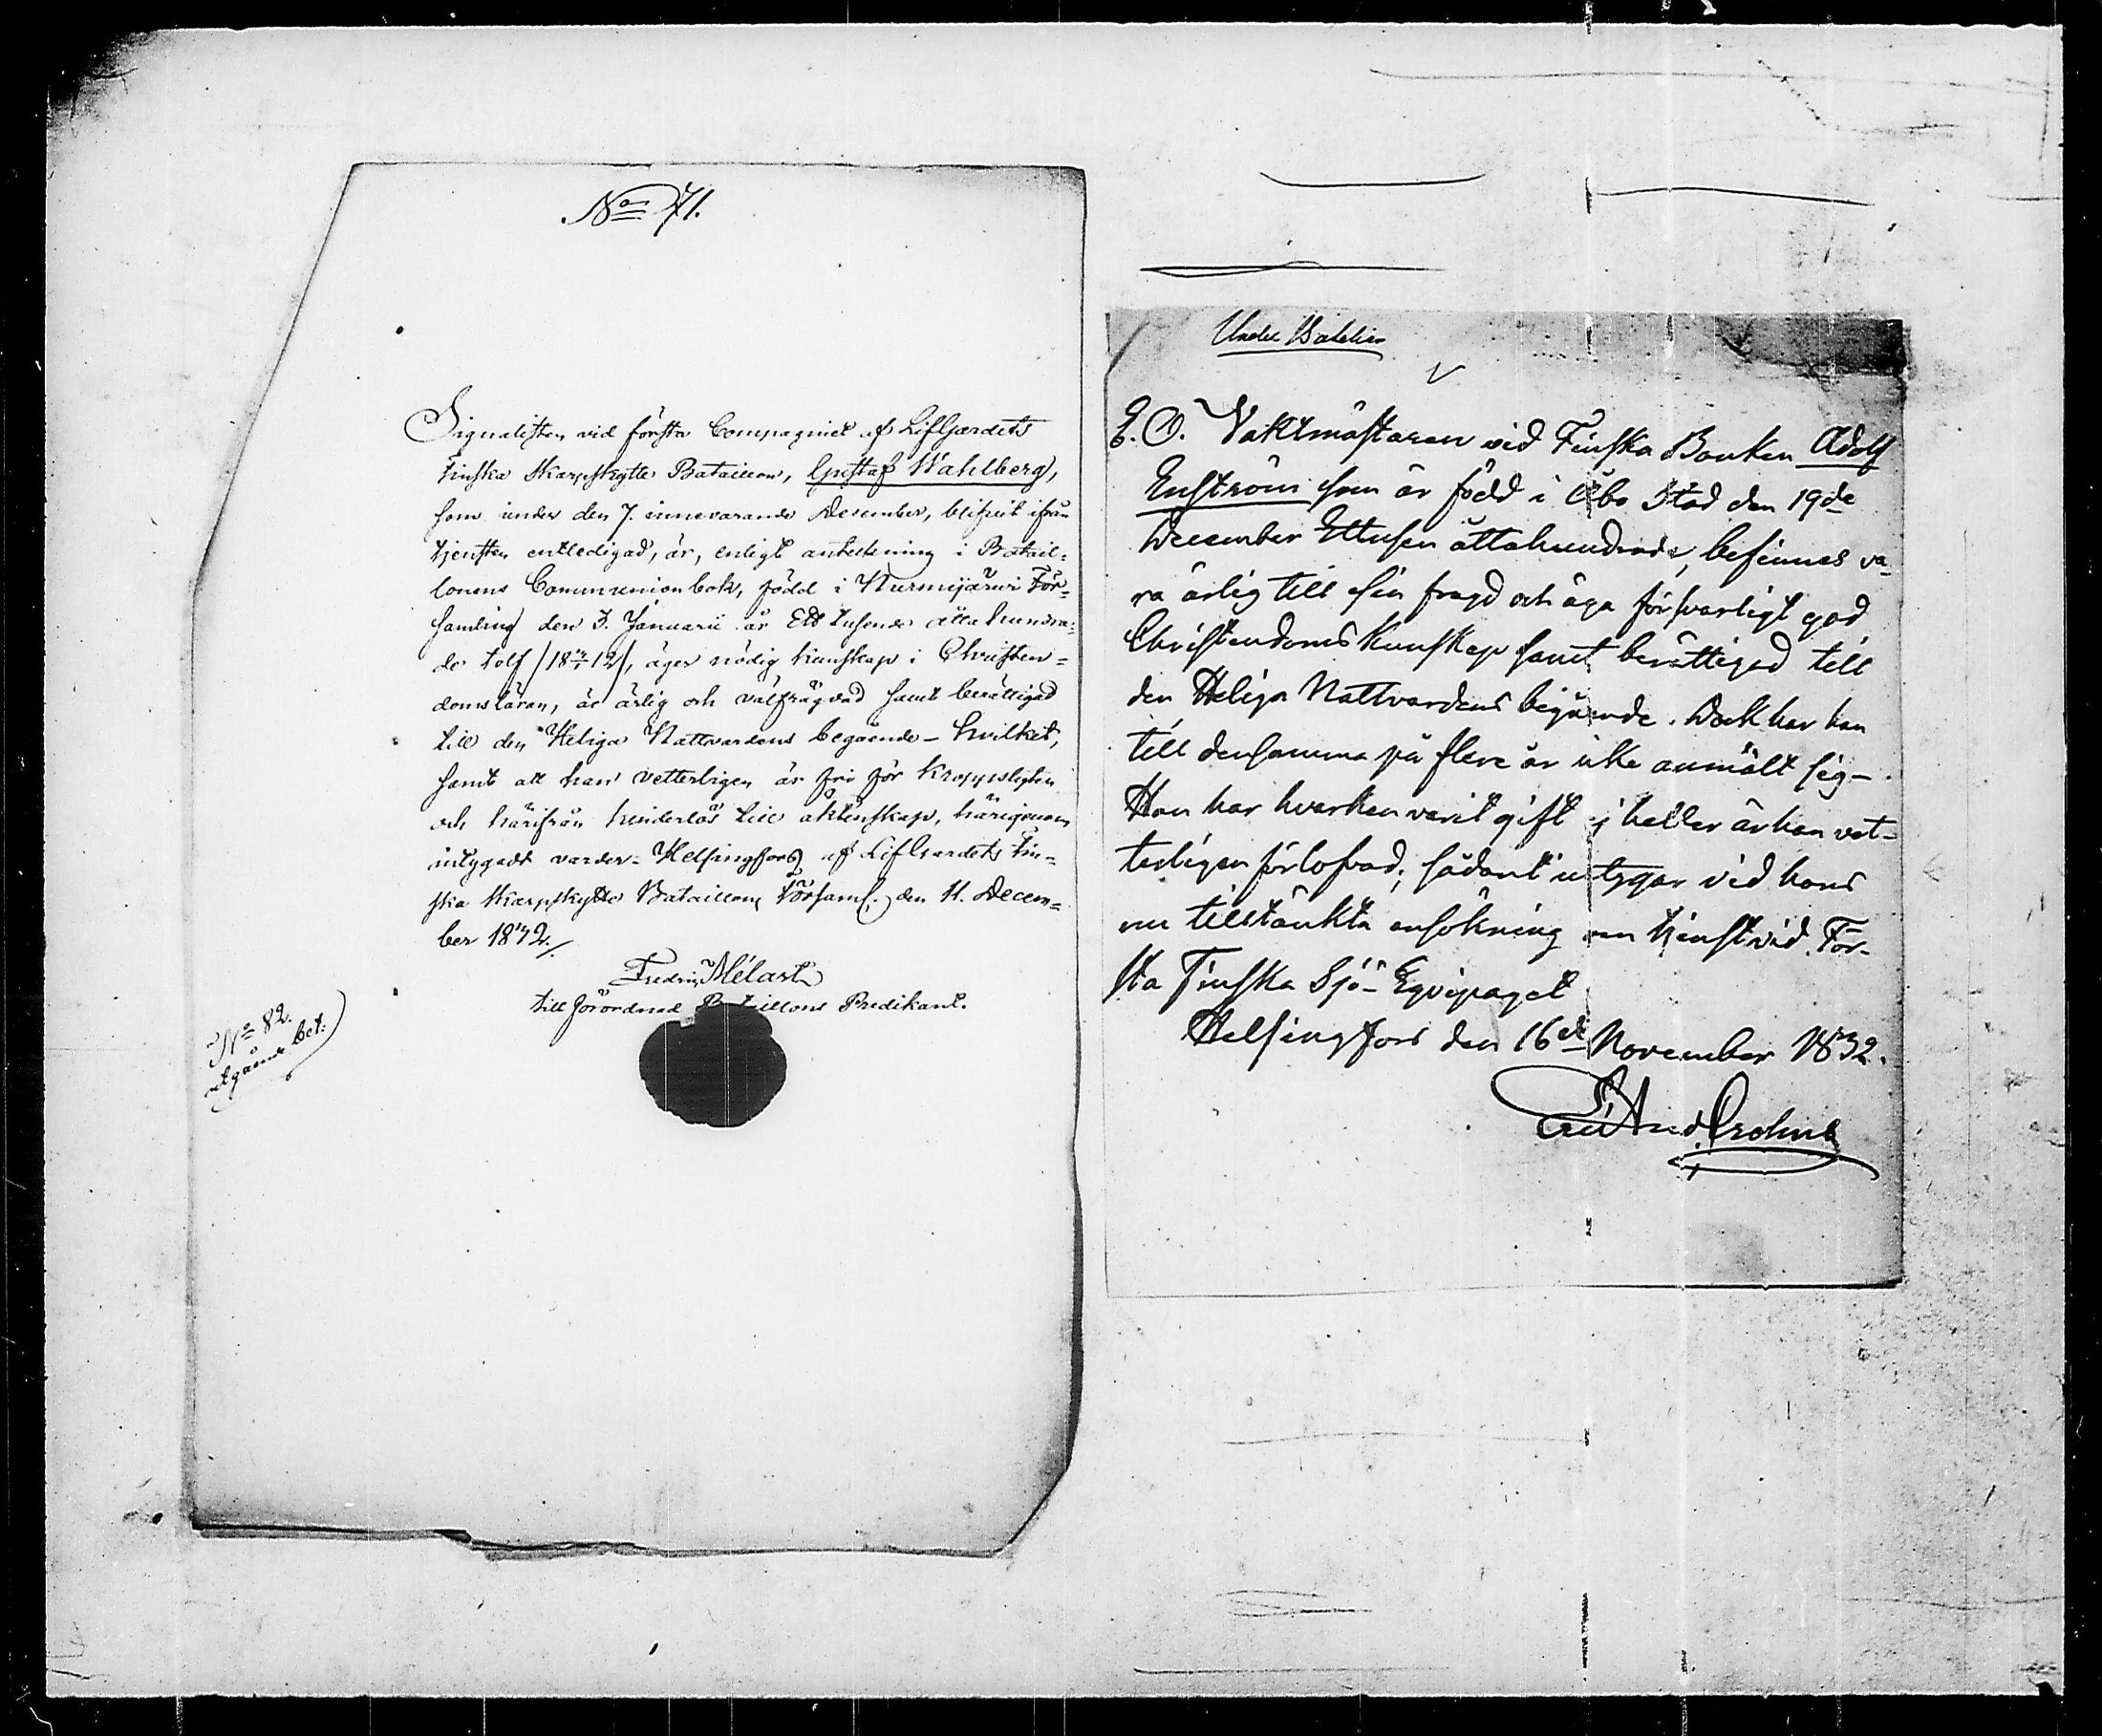 No 71.
Signalisten vid första Compagniet af LifGardets
Finska Skarpskytte Bataillon, Gustaf Wahlberg,
som under den 7. innevarande December, blifvit ifrån
tjensten entledigad, är, enligt anteckning i Batail-
lonens Communionbok, född i Nurmijärvi För-
samling den 3. Januarii år Ett tusende åttahundra-
de tolf /1812/, äger nödig kunskap i Christen-
domsläran, är ärlig och välfrägdad samt berättigad
till den Heliga Nattvardens begående – hvilket,
samt att han vetterligen är fri för kroppslyten
och härifrån hinderlös till äktenskap, härigenom
intygadt varder. Helsingfors af LifGardets Fin-
ska Skarpskytte Bataillons Församl. den 11. Decem-
ber 1832./.
Fredrik Mélart
till förordnad Bataillons Predikant.
No 82.
utgående bet:
Under
E. O. Vaktmästaren vid Finska Banken Adolf
Enström som är född i Åbo Stad den 19de
December Ettusen åttahundrade, befinnes va-
ra ärlig till sin fragd och äga försvarligt god
Christendoms Kunskap samt berättigad till
den Heliga Nattvardens begående. Dock har han
till densamma på flere år icke anmält sig –
Han har hvarken varit gift ej heller är han vet-
terligen förlofvad; sådant intygar vid hans
nu tilltänkta ansökning om tjenst vid För-
sta Finska Sjö-Eqvipaget
Helsingfors den 16de November 1832.
And. Crohns